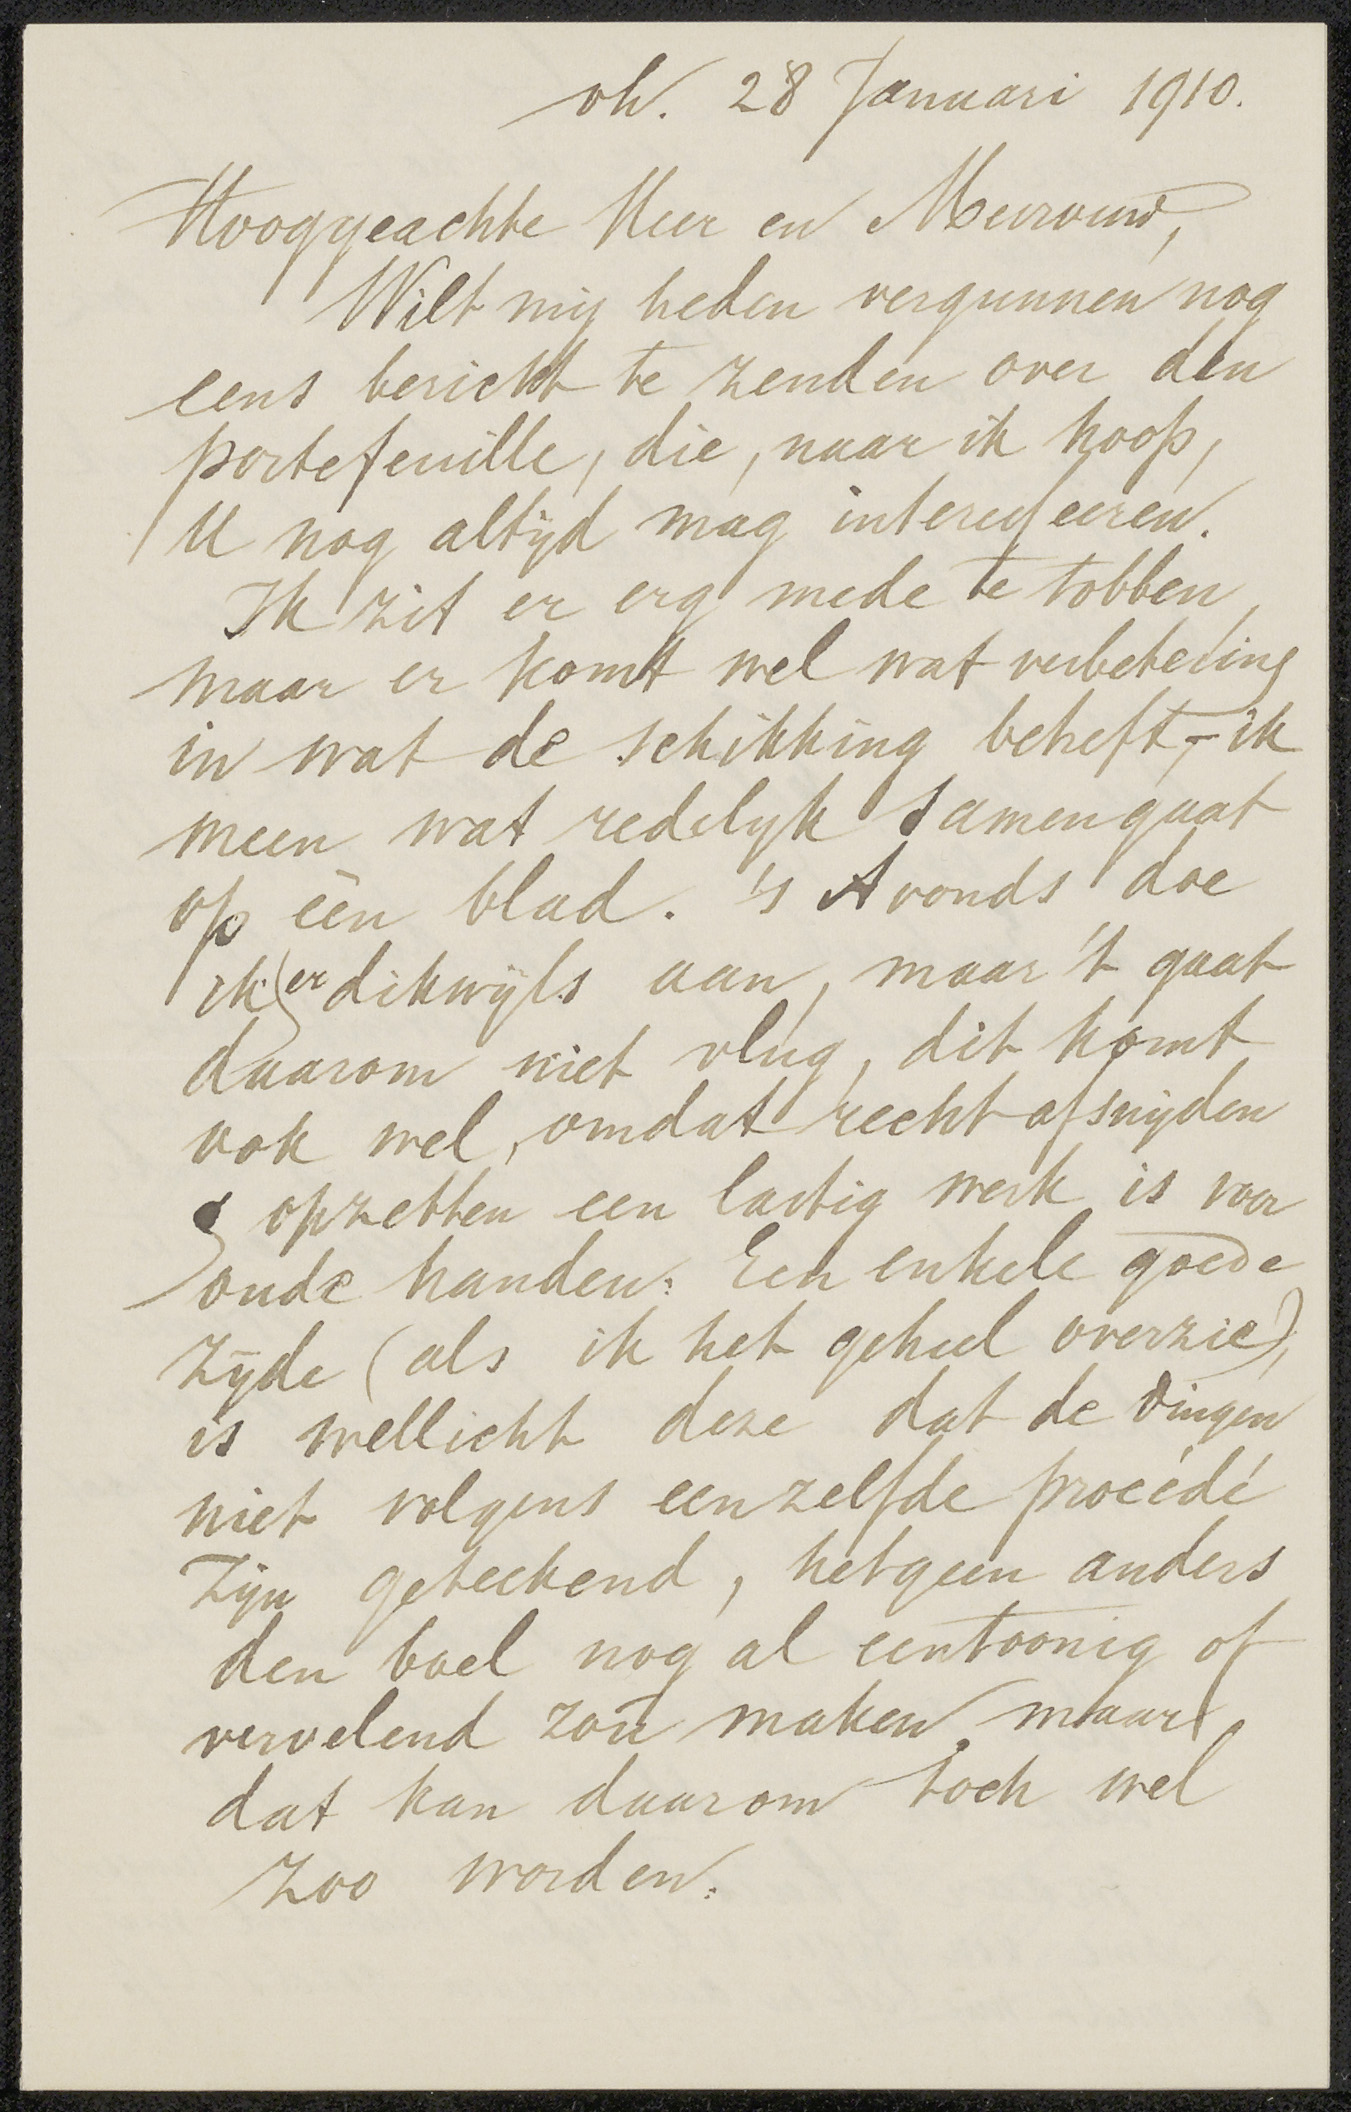 vh. 28 Januari 1910.
Hooggeachte Heer en Mevrouw,
Wilt mij heden vergunnen nog
eens bericht te zenden over den
portefeuille, die, naar ik hoop,
U nog altijd mag interesseeren.
Ik zit er erg mede te tobben,
maar er komt wel wat verbetering
in wat de schikking betreft, – ik
meen wat redelijk samengaat
op één blad. 's Avonds doe
ik er dikwijls aan, maar 't gaat
daarom niet vlug, dit komt
ook wel, omdat recht afsnijden
& opzetten een lastig werk is voor
oude handen. Een enkele goede
zijde (als ik het geheel overzie),
is wellicht deze dat de dingen
niet volgens eenzelfde procédé
zijn geteekend, hetgeen anders
den boel nog al eentoonig of
vervelend zou maken, maar
dat kan daarom toch wel
zoo worden.